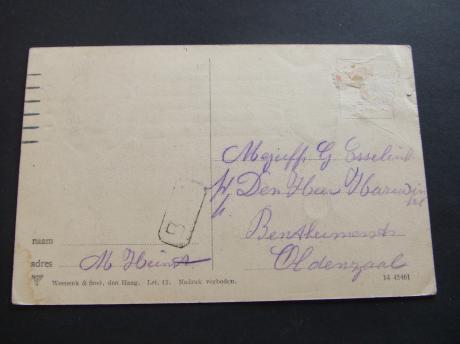 Mejuff. G Esselink
p/a Den Heer
Bentheimerstr
Oldenzaal
B
naam
adres M Heinst
Weenenk & Snel, den Haag. Let. 12. Nadruk verboden.
14 45461